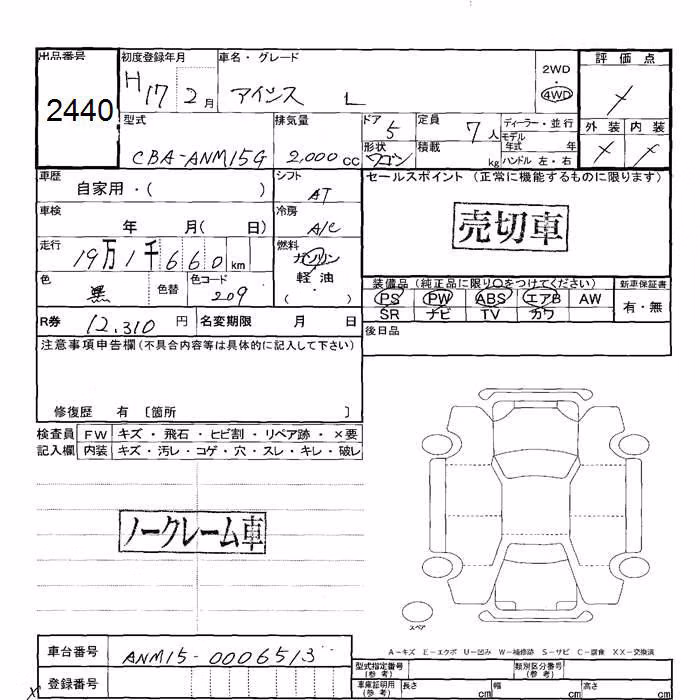 出品番号 初度登録年月 車名・グレード 評価点
2440 H17 2月 アイシス L 2WD・4WD
型式 排気量 ドア 定員 ディーラー・並行 外装 内装
CBA-ANM15G 2,000cc 5 7人 モデル年式 年
形状 ワゴン 積載 kg ハンドル 左・右
車歴 シフト セールスポイント (正常に機能するものに限ります)
自家用・( ) AT
車検 冷房 売切車
年 月( 日) A/C
走行 燃料
19万1千660km ガソリン
軽油
色 色替 色コード ・( ) 装備品 (純正品に限り〇をつけてください) 新車保証書
黒 209 PS PW ABS エアB AW 有・無
SR ナビ TV カワ
R券 12,310円 名変期限 月 日 後日品
注意事項申告欄(不具合内容等は具体的に記入して下さい)
修復歴 有 〔箇所 〕
検査員 FW キズ・飛石・ヒビ割・リペア跡・×要
記入欄 内装 キズ・汚レ・コゲ・穴・スレ・キレ・破レ
ノークレーム車
スペア
車台番号 ANM15-0006513
A-キズ E-エクボ U-凹み W-補修跡 S-サビ C-腐食 XX-交換済
型式指定番号(参考) 類別区分番号(参考)
登録番号 車庫証明用(参考) 長さ cm 幅 cm 高さ cm